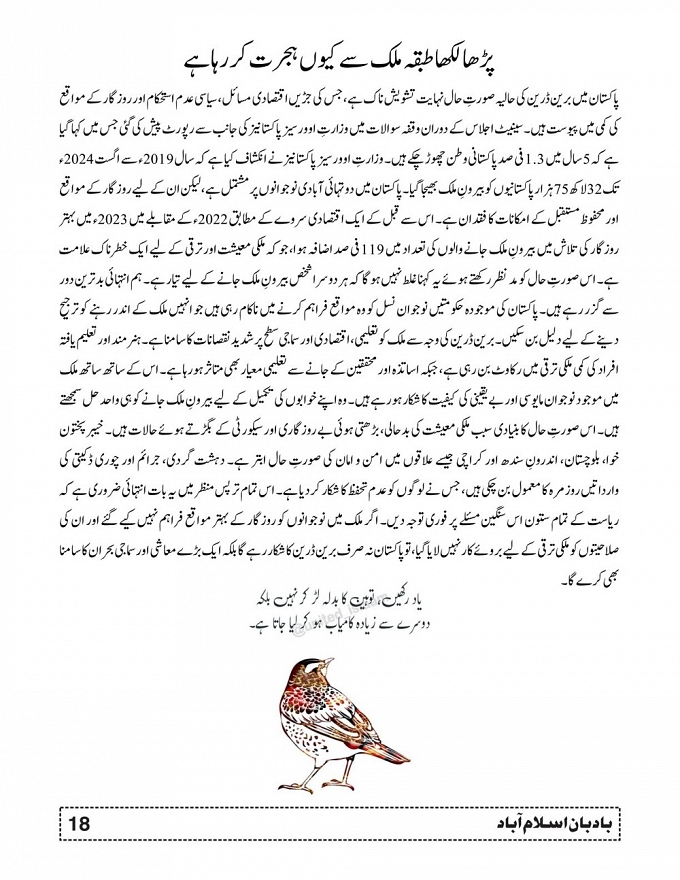 پڑھا لکھا طبقہ ملک سے کیوں ہجرت کر رہا ہے
پاکستان میں برین ڈرین کی حالیہ صورتِ حال نہایت تشویش ناک ہے، جس کی جڑیں اقتصادی مسائل، سیاسی عدم استحکام اور روزگار کے مواقع
کی کمی میں پیوست ہیں۔ سینیٹ اجلاس کے دوران وقفہ سوالات میں وزارتِ اوورسیز پاکستانیز کی جانب سے رپورٹ پیش کی گئی جس میں کہا گیا
ہے کہ 5 سال میں 1.3 فی صد پاکستانی وطن چھوڑ چکے ہیں۔ وزارتِ اوورسیز پاکستانیز نے انکشاف کیا ہے کہ سال 2019ء سے اگست 2024ء
تک 32 لاکھ 75 ہزار پاکستانیوں کو بیرونِ ملک بھیجا گیا۔ پاکستان میں دو تہائی آبادی نوجوانوں پر مشتمل ہے، لیکن ان کے لیے روزگار کے مواقع
اور محفوظ مستقبل کے امکانات کا فقدان ہے۔ اس سے قبل کے ایک اقتصادی سروے کے مطابق 2022ء کے مقابلے میں 2023ء میں بہتر
روزگار کی تلاش میں بیرونِ ملک جانے والوں کی تعداد میں 119 فی صد اضافہ ہوا، جو کہ ملکی معیشت اور ترقی کے لیے ایک خطرناک علامت
ہے۔ اس صورتِ حال کو مد نظر رکھتے ہوئے یہ کہنا غلط نہیں ہو گا کہ ہر دوسرا شخص بیرونِ ملک جانے کے لیے تیار ہے۔ ہم انتہائی بدترین دور
سے گزر رہے ہیں۔ پاکستان کی موجودہ حکومتیں نوجوان نسل کو وہ مواقع فراہم کرنے میں ناکام رہی ہیں جو انہیں ملک کے اندر رہنے کو ترجیح
دینے کے لیے دلیل بن سکیں۔ برین ڈرین کی وجہ سے ملک کو تعلیمی، اقتصادی اور سماجی سطح پر شدید نقصانات کا سامنا ہے۔ ہنر مند اور تعلیم یافتہ
افراد کی کمی ملکی ترقی میں رکاوٹ بن رہی ہے، جبکہ اساتذہ اور محققین کے جانے سے تعلیمی معیار بھی متاثر ہو رہا ہے۔ اس کے ساتھ ساتھ ملک
میں موجود نوجوان مایوسی اور بے یقینی کی کیفیت کا شکار ہو رہے ہیں۔ وہ اپنے خوابوں کی تکمیل کے لیے بیرونِ ملک جانے کو ہی واحد حل سمجھتے
ہیں۔ اس صورتِ حال کا بنیادی سبب ملکی معیشت کی بدحالی، بڑھتی ہوئی بے روزگاری اور سیکورٹی کے بگڑتے ہوئے حالات ہیں۔ خیبر پختون
خوا، بلوچستان، اندرونِ سندھ اور کراچی جیسے علاقوں میں امن و امان کی صورتِ حال ابتر ہے۔ دہشت گردی، جرائم اور چوری ڈکیتی کی
وارداتیں روزمرہ کا معمول بن چکی ہیں، جس نے لوگوں کو عدم تحفظ کا شکار کر دیا ہے۔ اس تمام تر پس منظر میں یہ بات انتہائی ضروری ہے کہ
ریاست کے تمام ستون اس سنگین مسئلے پر فوری توجہ دیں۔ اگر ملک میں نوجوانوں کو روزگار کے بہتر مواقع فراہم نہیں کیے گئے اور ان کی
صلاحیتوں کو ملکی ترقی کے لیے بروئے کار نہیں لایا گیا، تو پاکستان نہ صرف برین ڈرین کا شکار رہے گا بلکہ ایک بڑے معاشی اور سماجی بحران کا سامنا
بھی کرے گا۔
یاد رکھیں، توہین کا بدلہ لڑ کر نہیں بلکہ
دوسرے سے زیادہ کامیاب ہو کر لیا جاتا ہے۔
بادبان اسلام آباد
18